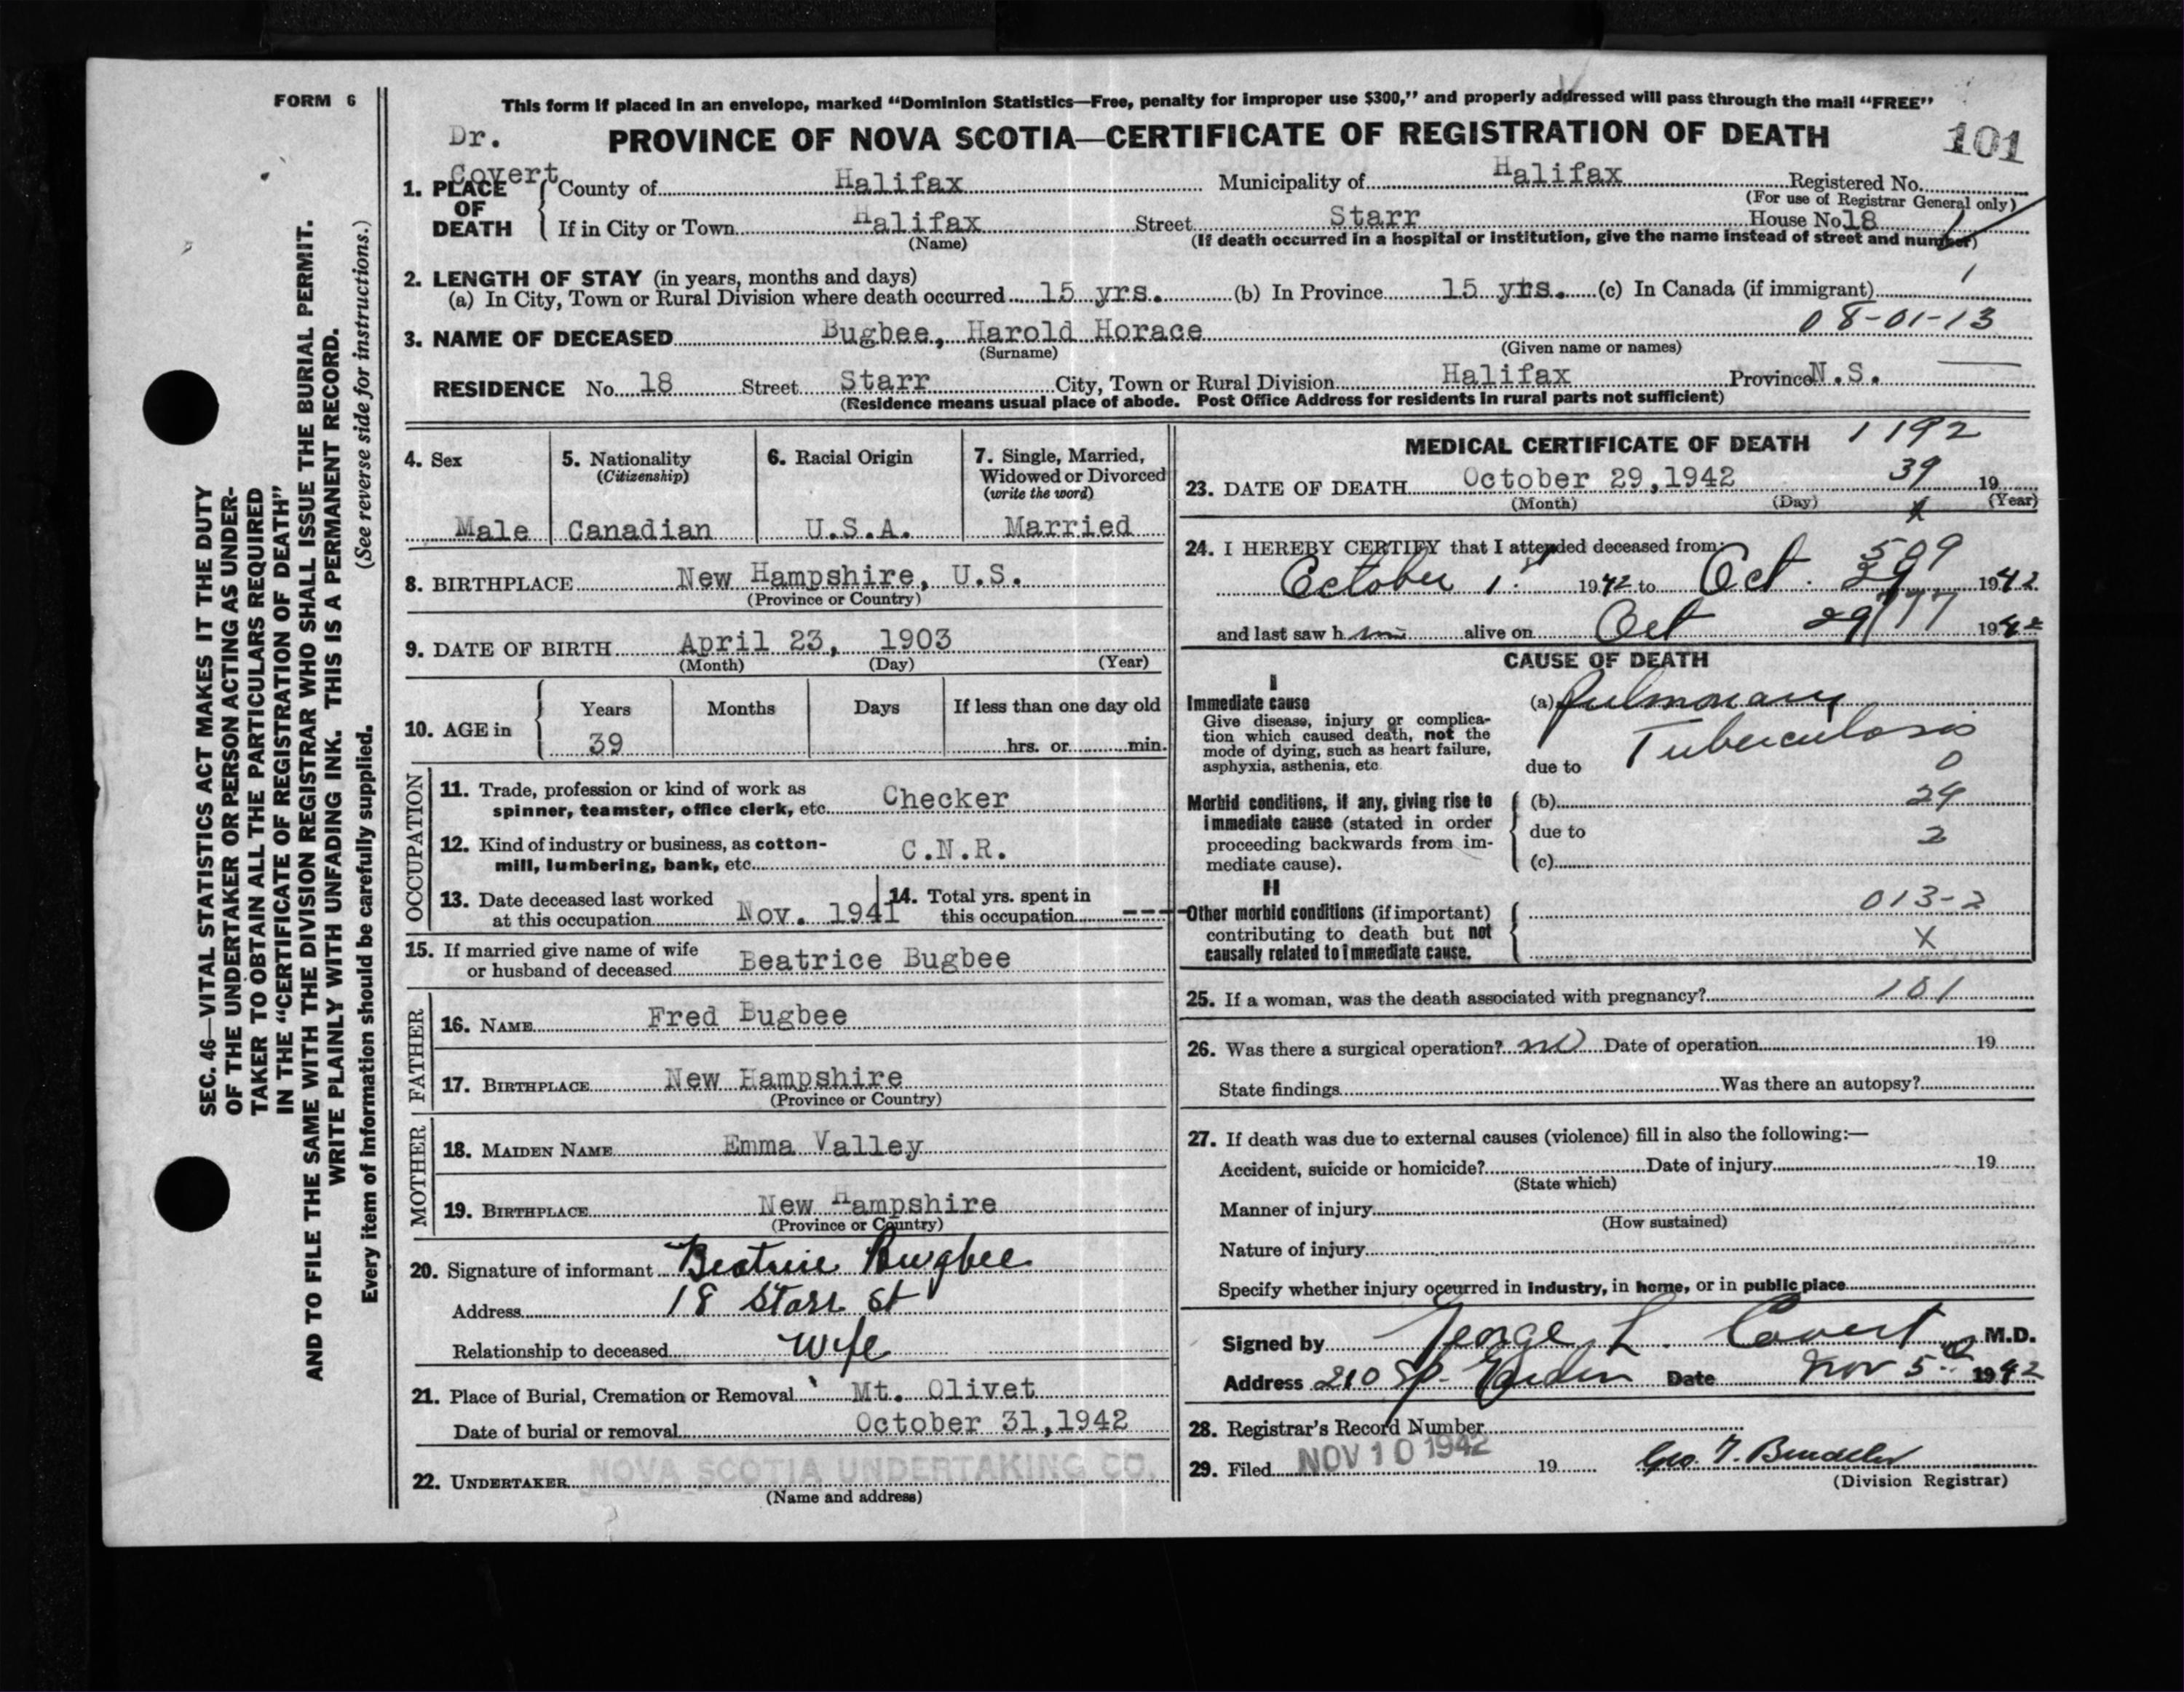 FORM 6
This form if placed in an envelope, marked "Dominion Statistics—Free, penalty for improper use $300," and properly addressed will pass through the mail "FREE"
Dr. Covert
PROVINCE OF NOVA SCOTIA—CERTIFICATE OF REGISTRATION OF DEATH
101
1. PLACE OF DEATH
County of Halifax Municipality of Halifax Registered No.
(For use of Registrar General only)
If in City or Town Halifax Street Starr House No 18
(Name) (If death occurred in a hospital or institution, give the name instead of street and number)
2. LENGTH OF STAY (in years, months and days)
(a) In City, Town or Rural Division where death occurred 15 yrs. (b) In Province 15 yrs. (c) In Canada (if immigrant)
3. NAME OF DECEASED Bugbee, Harold Horace 08-01-13
(Surname) (Given name or names)
RESIDENCE No. 18 Street Starr City, Town or Rural Division Halifax Province N.S.
(Residence means usual place of abode. Post Office Address for residents in rural parts not sufficient)
4. Sex
Male
5. Nationality
(Citizenship)
Canadian
6. Racial Origin
U.S.A.
7. Single, Married,
Widowed or Divorced
(write the word)
Married
8. BIRTHPLACE New Hampshire, U.S.
(Province or Country)
9. DATE OF BIRTH April 23, 1903
(Month) (Day) (Year)
10. AGE in
Years Months Days If less than one day old
39 hrs. or min.
OCCUPATION
11. Trade, profession or kind of work as
spinner, teamster, office clerk, etc. Checker
12. Kind of industry or business, as cotton-
mill, lumbering, bank, etc. C.N.R.
13. Date deceased last worked
at this occupation Nov. 1941
14. Total yrs. spent in
this occupation ----
15. If married give name of wife
or husband of deceased Beatrice Bugbee
FATHER
16. NAME Fred Bugbee
17. BIRTHPLACE New Hampshire
(Province or Country)
MOTHER
18. MAIDEN NAME Emma Valley
19. BIRTHPLACE New Hampshire
(Province or Country)
20. Signature of informant Beatrice Bugbee
Address 18 Starr St
Relationship to deceased Wife
21. Place of Burial, Cremation or Removal Mt. Olivet
Date of burial or removal October 31, 1942
22. UNDERTAKER NOVA SCOTIA UNDERTAKING CO.
(Name and address)
MEDICAL CERTIFICATE OF DEATH 1192
23. DATE OF DEATH October 29, 1942 39 19
(Month) (Day) (Year)
24. I HEREBY CERTIFY that I attended deceased from:
509
October 1st 1942 to Oct. 29 1942
and last saw him alive on Oct 29 1942
777
CAUSE OF DEATH
I
Immediate cause
Give disease, injury or complica-
tion which caused death, not the
mode of dying, such as heart failure,
asphyxia, asthenia, etc.
(a) Pulmonary
Tuberculosis
due to 0
Morbid conditions, if any, giving rise to
immediate cause (stated in order
proceeding backwards from im-
mediate cause).
(b) 29
due to 2
(c)
II
Other morbid conditions (if important)
contributing to death but not
causally related to immediate cause.
013-2
X
25. If a woman, was the death associated with pregnancy? 101
26. Was there a surgical operation? no Date of operation 19
State findings Was there an autopsy?
27. If death was due to external causes (violence) fill in also the following:—
Accident, suicide or homicide? Date of injury 19
(State which)
Manner of injury
(How sustained)
Nature of injury
Specify whether injury occurred in industry, in home, or in public place
Signed by George L. Covert M.D.
Address 210 Sp. Garden Date Nov 5th 1942
28. Registrar's Record Number
29. Filed NOV 10 1942 19
(Division Registrar)
SEC. 46—VITAL STATISTICS ACT MAKES IT THE DUTY
OF THE UNDERTAKER OR PERSON ACTING AS UNDER-
TAKER TO OBTAIN ALL THE PARTICULARS REQUIRED
IN THE "CERTIFICATE OF REGISTRATION OF DEATH"
AND TO FILE THE SAME WITH THE DIVISION REGISTRAR WHO SHALL ISSUE THE BURIAL PERMIT.
WRITE PLAINLY WITH UNFADING INK. THIS IS A PERMANENT RECORD.
Every item of information should be carefully supplied. (See reverse side for instructions.)